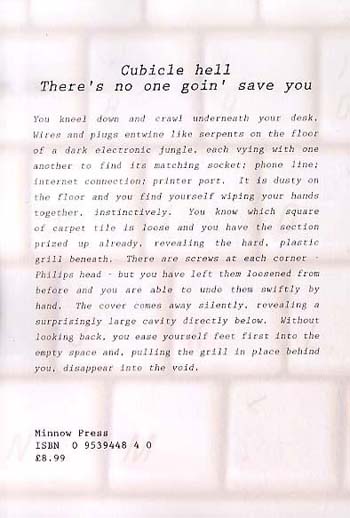 Cubicle hell
There's no one goin' save you
You kneel down and crawl underneath your desk.
Wires and plugs entwine like serpents on the floor
of a dark electronic jungle, each vying with one
another to find its matching socket; phone line;
internet connection; printer port. It is dusty on
the floor and you find yourself wiping your hands
together, instinctively. You know which square
of carpet tile is loose and you have the section
prized up already, revealing the hard, plastic
grill beneath. There are screws at each corner -
Philips head - but you have left them loosened from
before and you are able to undo them swiftly by
hand. The cover comes away silently, revealing a
surprisingly large cavity directly below. Without
looking back, you ease yourself feet first into the
empty space and, pulling the grill in place behind
you, disappear into the void.
Minnow Press
ISBN 0 9539448 4 0
£8.99